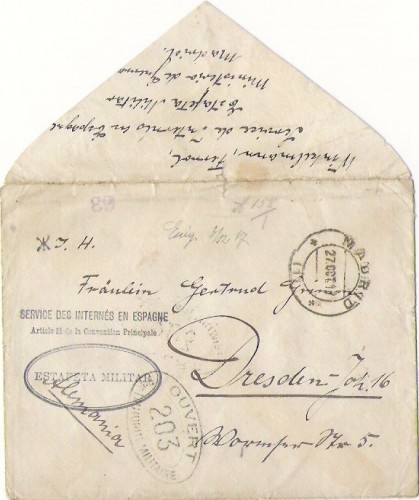 Winkelmann, Ferrol,
Service de Internés en Espagne
Estafeta Militar
Ministerio de Guerra
Madrid.
63
Eing. 3/12 17
I. H.
MADRID
27 OCT 17
Fräulein Gertrud
SERVICE DES INTERNÉS EN ESPAGNE
Article 15 de la Convention Principale
ESTAFETA MILITAR
Alemania
OUVERT
203
Dresden-Joh. 16
Wormser Str 5.